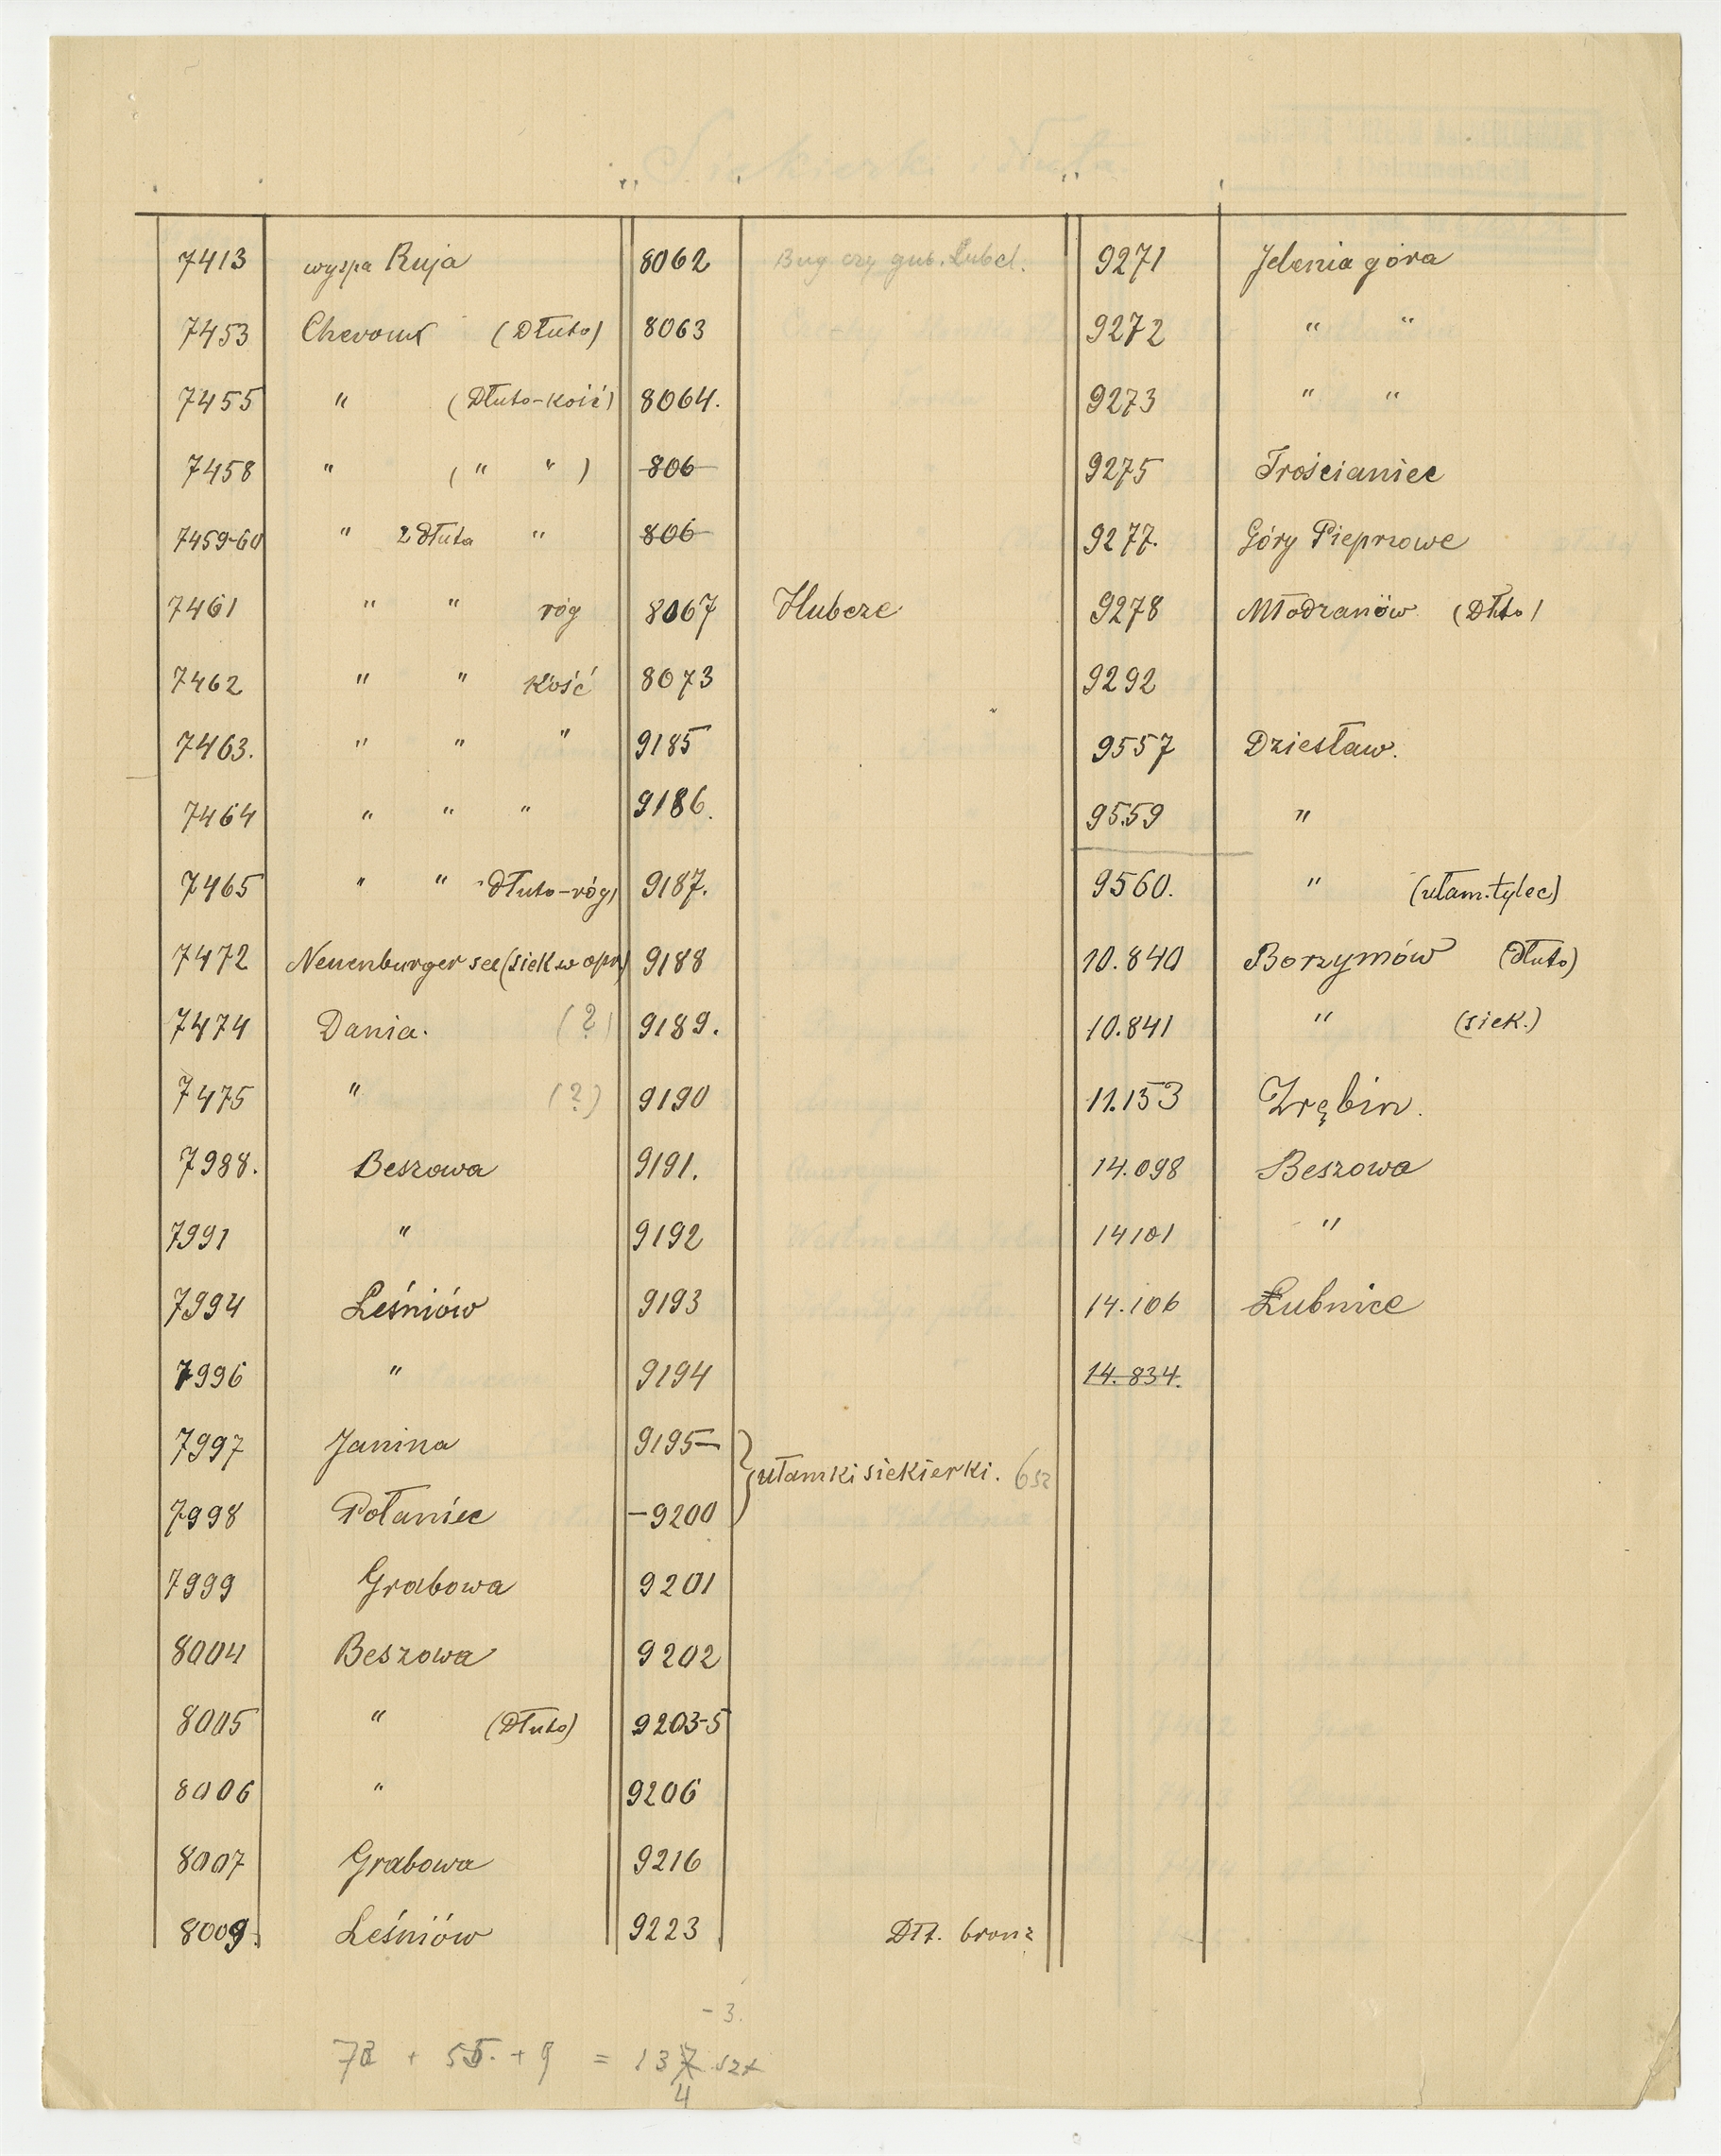 7413 wyspa Ruja 8062 Bug czy gub. Lubel. 9271 Jelenia góra
7453 Chevroux (Dłuto) 8063 9272 " "
7455 " (Dłuto-kość) 8064. 9273 " "
7458 " ( " " ) 806 9275 Trościaniec
7459-60 " 2 dłuta " 806 9277. Góry Pieprzowe
7461 " " róg 8067 Hubcze 9278 Młodzanów (Dłto)
7462 " " Kość 8073 9292
7463. " " " 9185 9557 Dziesław.
7464 " " " 9186. 9559 "
7465 " " dłuto-róg) 9187. 9560. " (ułam. tylec)
7472 Neuenburger see (siek w opr) 9188 10.840 Borzymów (Dłuto)
7474 Dania. (?) 9189. 10.841 " (siek.)
7475 " (?) 9190 11.153 Zrębin.
7988. Beszowa 9191. 14.098 Beszowa
7991 " 9192 14101 "
7994 Leśniów 9193 14.106 Łubnice
7996 " 9194 14.834.
7997 Janina 9195-
ułamki siekierki. 6 sz
7998 Połaniec -9200
7999 Grabowa 9201
8004 Beszowa 9202
8005 " (Dłuto) 9203-5
8006 " 9206
8007 Grabowa 9216
8009. Leśniów 9223 Dłt. bronz
- 3.
+ 9 = 137 szt
4